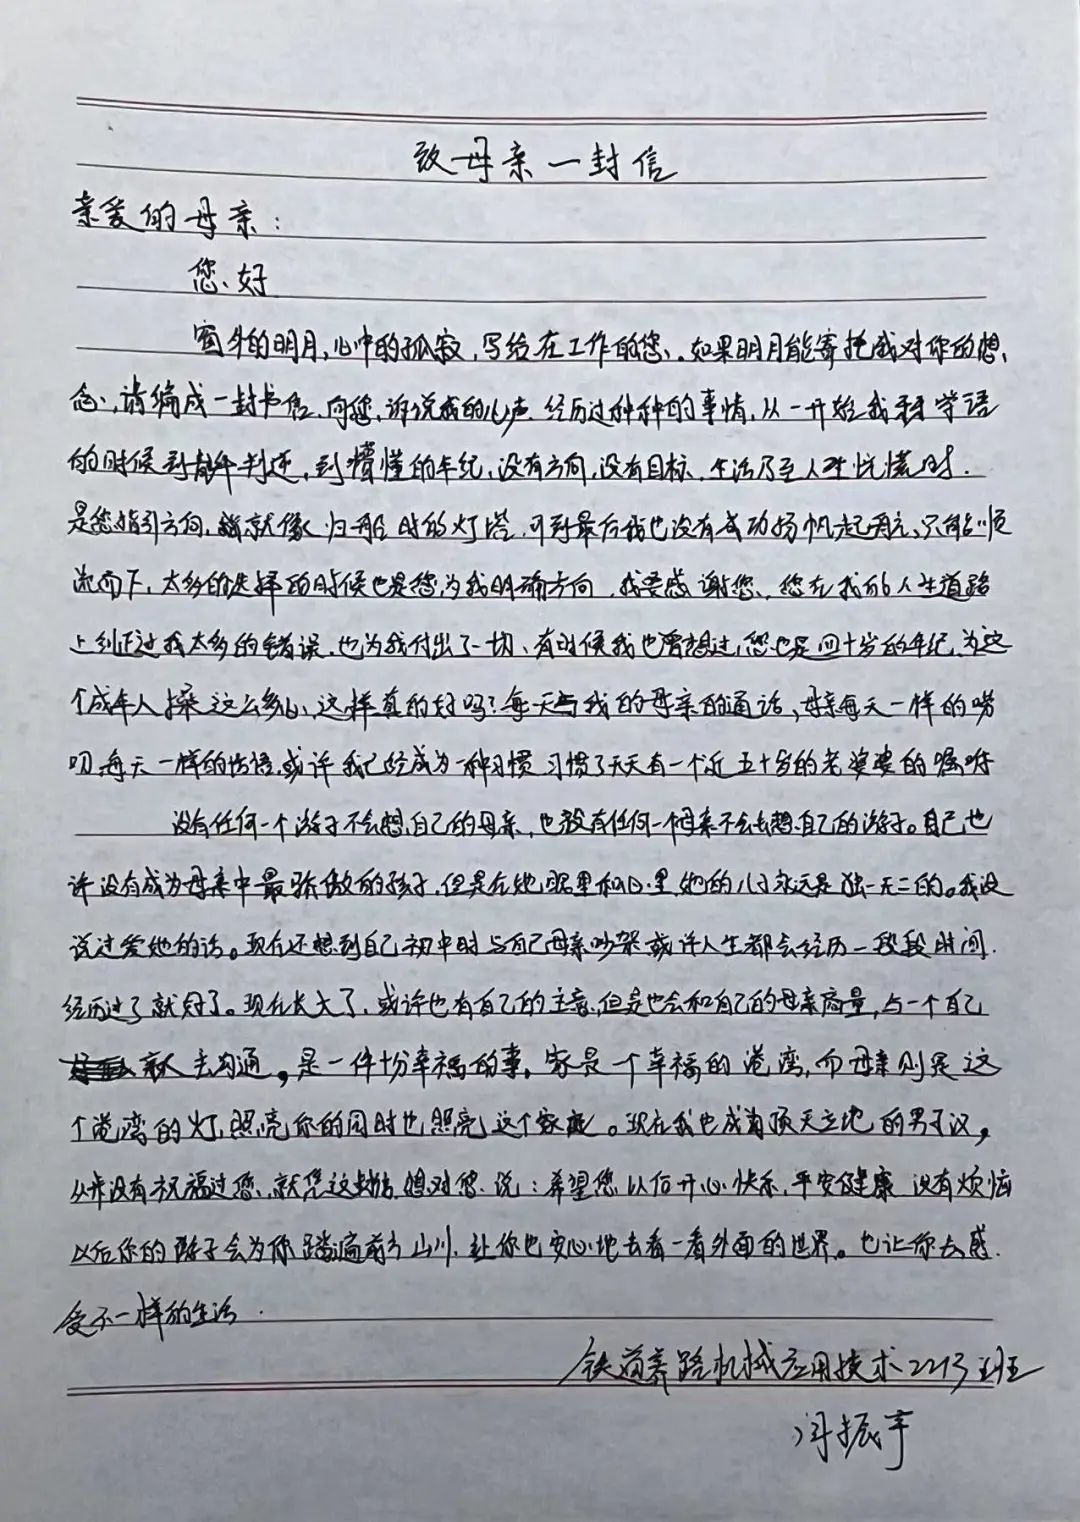 致母亲一封信
亲爱的母亲：
您好
窗外的明月，心中的孤寂，写给在工作的您、如果明月能寄托我对你的想
念，请编成一封书信、向您诉说我的心声、经历过种种的事情，从一开始我牙牙学语
的时候到青年判逆，到懵懂的年纪，没有方向，没有目标、生活乃至人生恍惚时.
是您指引方向，就像归船时的灯塔，可到最后我也没有成功扬帆起航、只能顺
流而下，太多的选择的时候也是您为我明确方向，我要感谢您、您在我的人生道路
上纠正过我太多的错误、也为我付出了一切、有时候我也曾想过，您也是四十岁的年纪、为这
个成年人操这么多心、这样真的好吗？每天与我的母亲的通话、母亲每天一样的唠
叨每天一样的话语，或许我已经成为一种习惯 习惯了天天有一个近五十岁的老婆婆的嘱咐
没有任何一个游子不会想自己的母亲，也没有任何一个母亲不会去想自己的游子。自己也
许没有成为母亲中最骄傲的孩子，但是在她眼里和心里，她的儿子永远是独一无二的。我没
说过爱她的话。现在还想到自己初中时与自己母亲吵架或许人生都会经历一段段时间.
经历过了就好了。现在长大了，或许也有自己的主意，但是也会和自己的母亲商量，与一个自己
亲人去沟通，是一件十分幸福的事。家是一个幸福的港湾，而母亲则是这
个港湾的灯，照亮你的同时也照亮这个家庭。现在我也成为顶天立地的男子汉，
从来没有祝福过您，就凭这封信想对您说：希望您以后开心快乐，平安健康 没有烦恼
以后你的孩子会为你踏遍前方山川，让你也安心地去看一看外面的世界。也让你去感
受不一样的生活.
铁道养路机械应用技术2213班
闫振宇